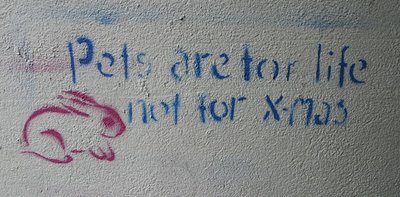 Pets are for life
not for X-Mas